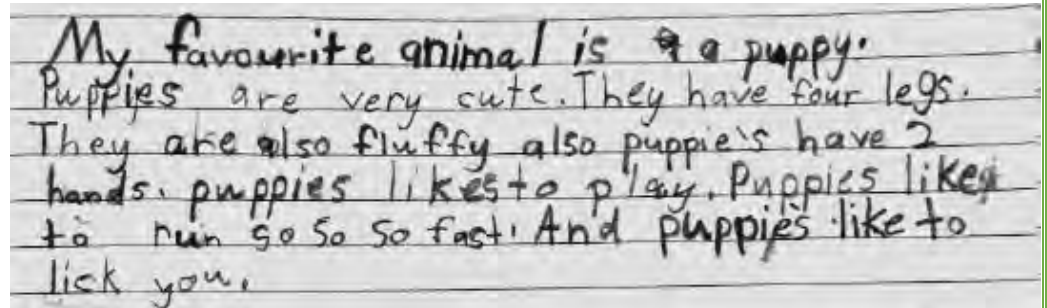 My favourite animal is a puppy.
Puppies are very cute. They have four legs.
They are also fluffy also puppie's have 2
hands. puppies likes to play. Puppies likes
to run so so so fast. And puppies like to
lick you.